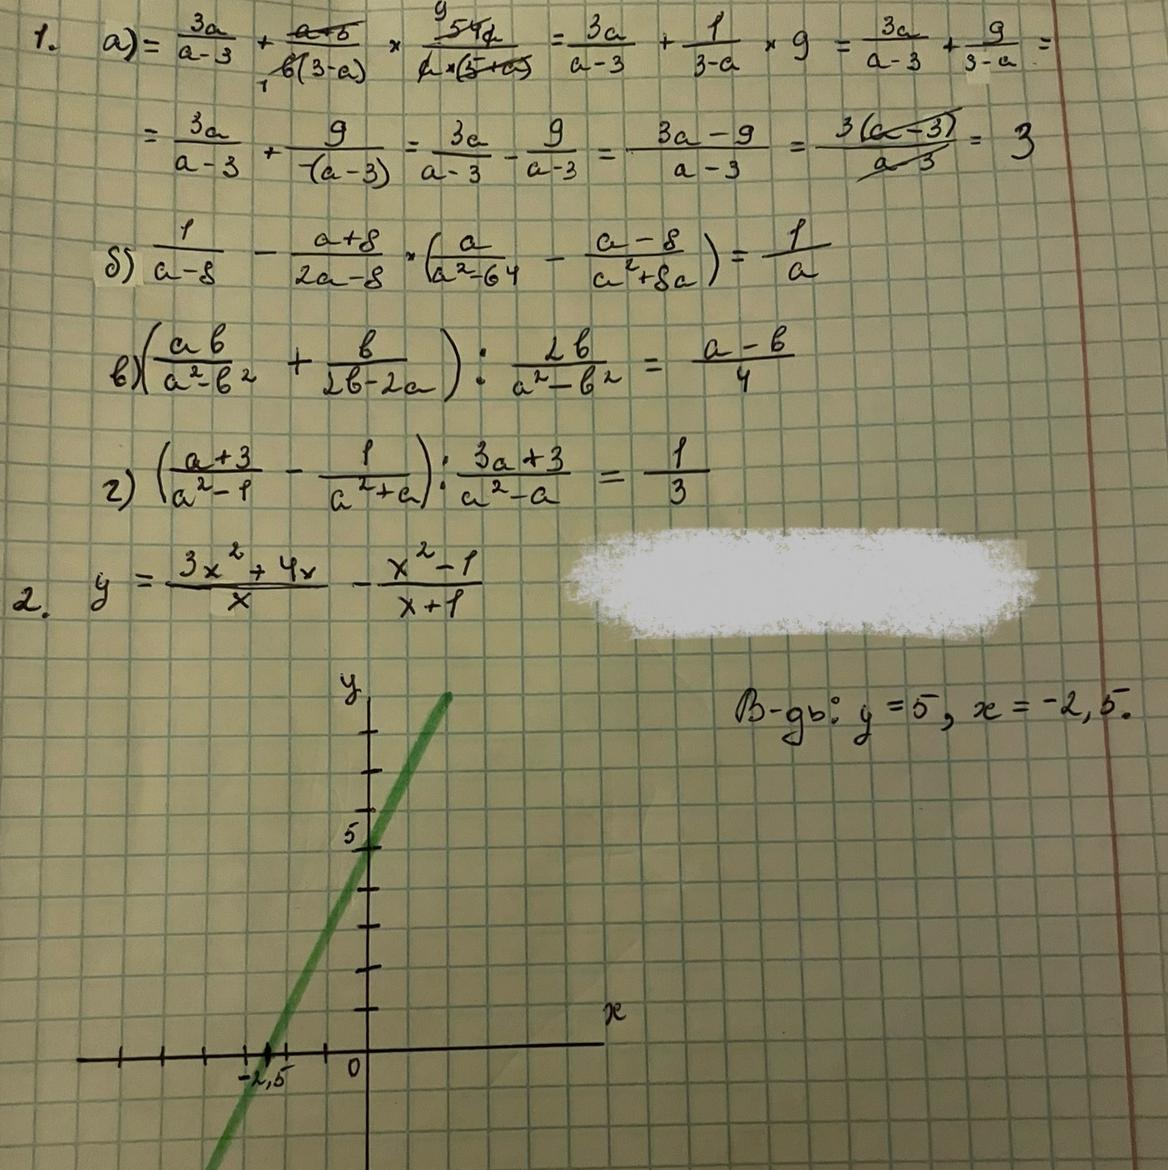 1. а) = 3a/(a-3) + (a+5)/(6(3-a)) × 54a/(a×(5+a)) = 3a/(a-3) + 1/(3-a) × 9 = 3a/(a-3) + 9/(3-a) =
= 3a/(a-3) + 9/(-(a-3)) = 3a/(a-3) - 9/(a-3) = (3a-9)/(a-3) = 3(a-3)/(a-3) = 3
б) 1/(a-8) - (a+8)/(2a-8) · (a/(a²-64) - (a-8)/(a²+8a)) = 1/a
в) (ab/(a²-b²) + b/(2b-2a)) : 2b/(a²-b²) = (a-b)/4
г) ((a+3)/(a²-1) - 1/(a²+a)) : (3a+3)/(a²-a) = 1/3
2. y = (3x²+4x)/x - (x²-1)/(x+1)
y
В-дь: y = 5, x = -2,5.
5
x
-2,5 0